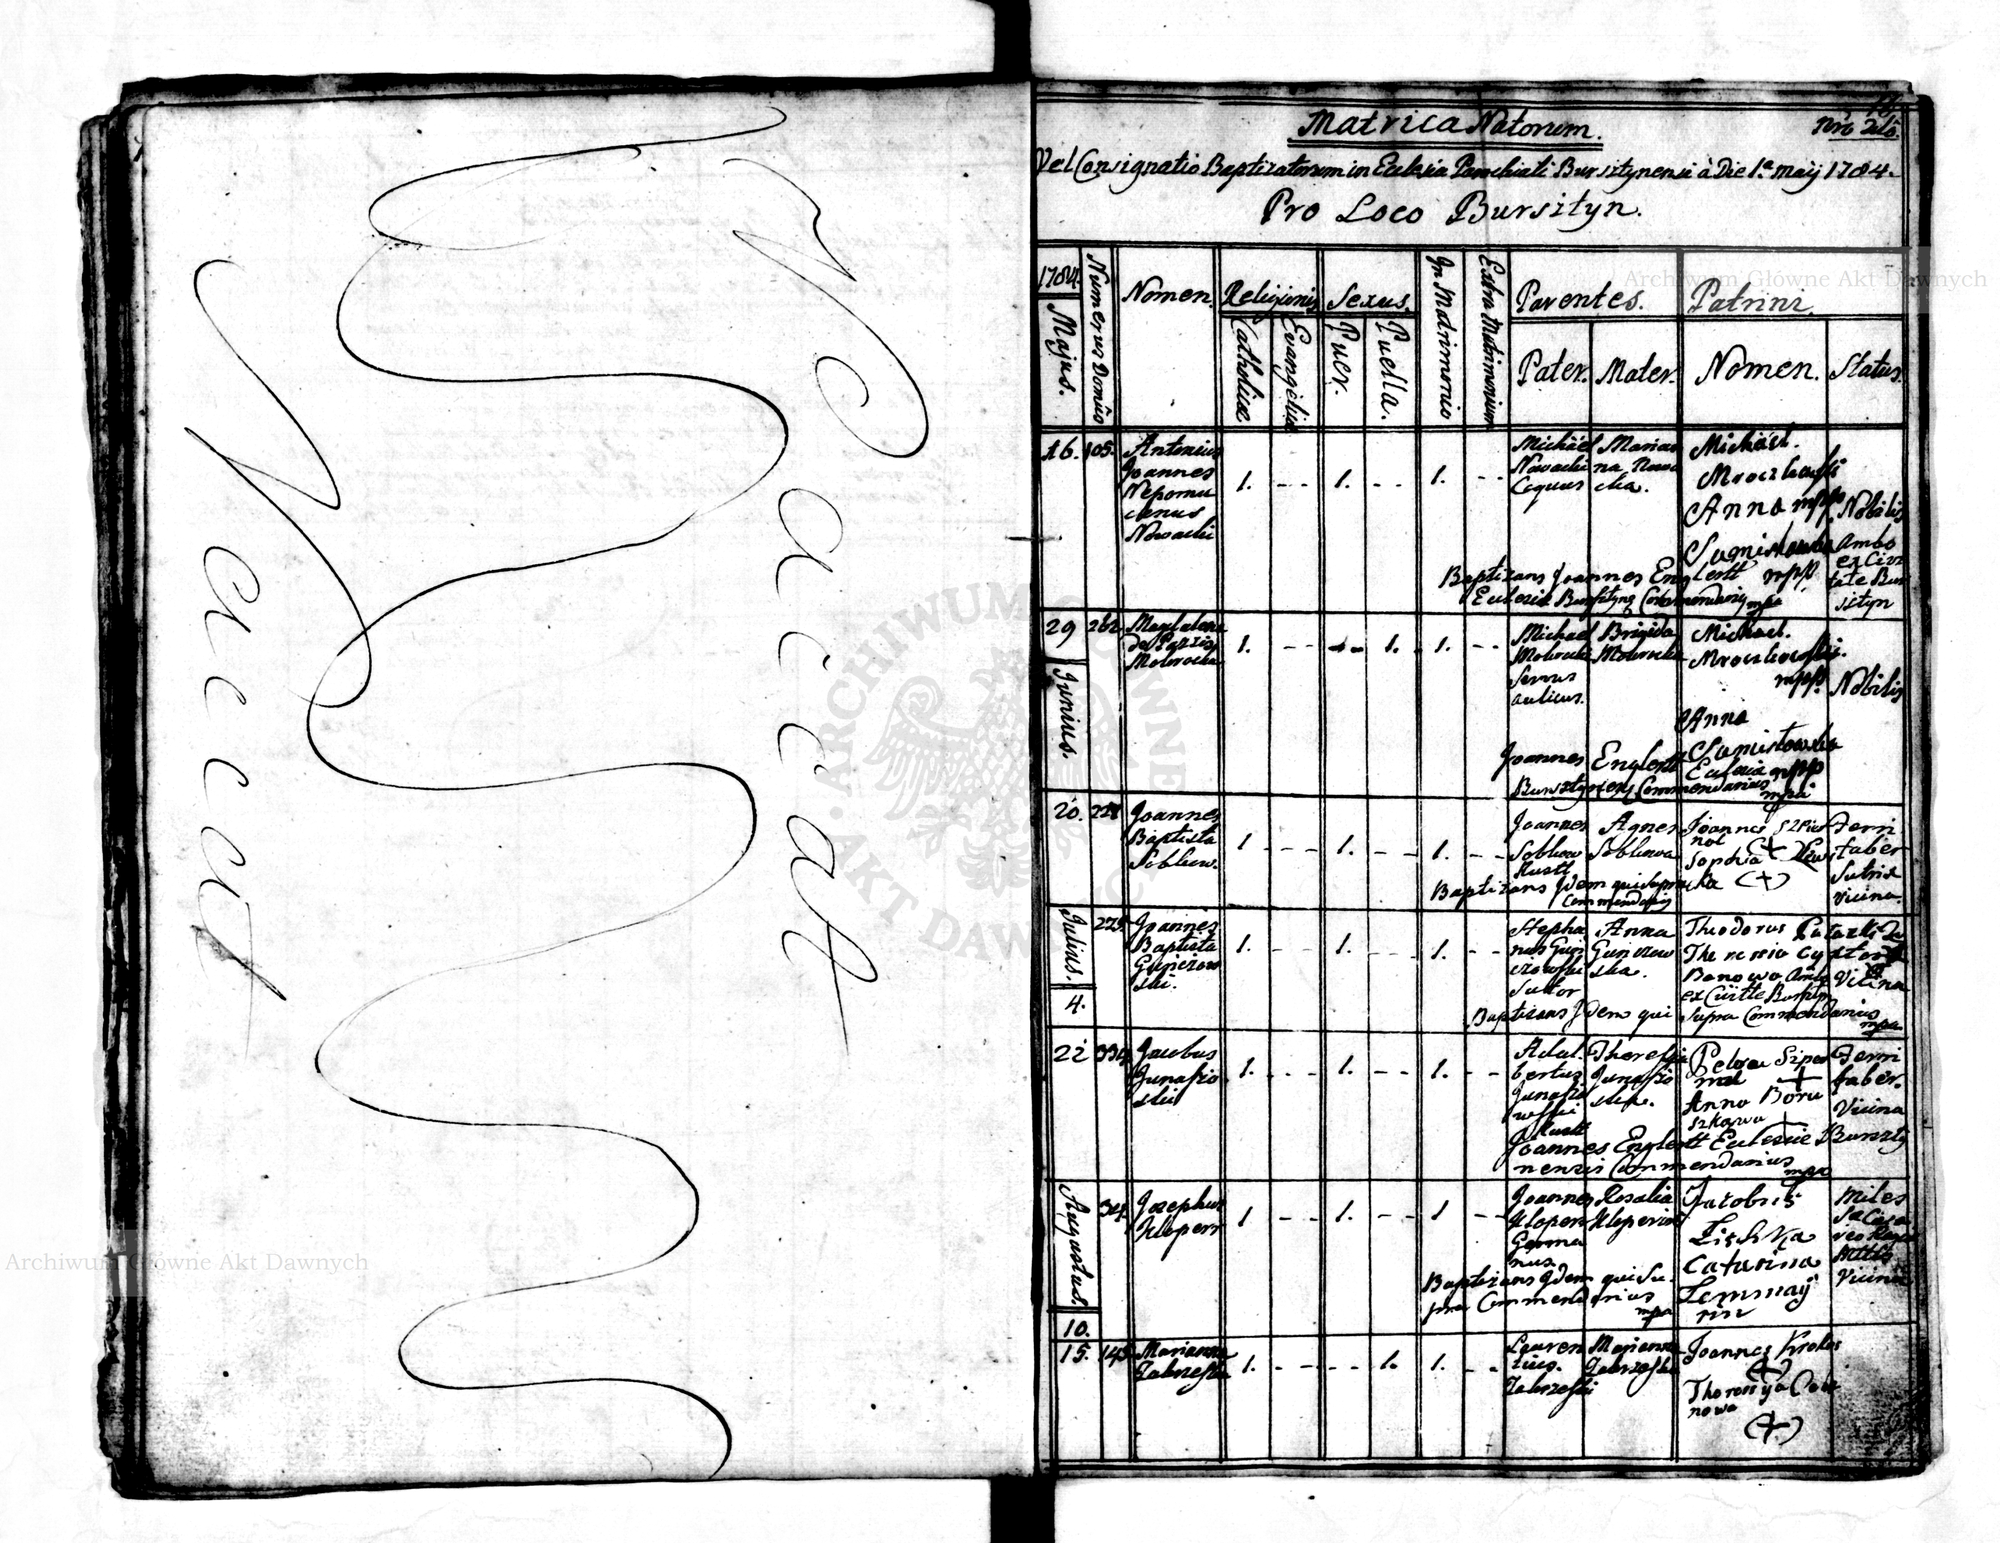 Vaccat
Vaccat
Matrica Natorum.
Nro 216.
Vel Consignatio Baptizatorum in Ecclesia Parochiali Bursztynensi à Die 1a maij 1784.
Pro Loco Bursztyn.
1784.
Majus.
Numerus Domûs
Nomen.
Religionis
Catholicæ
Evangelicæ
Sexus.
Puer.
Puella.
In Matrimonio
Extra Matrimonium
Parentes.
Pater.
Mater.
Patrini
Nomen.
Status.
16. 105.
Antonius
Joannes
Nepomu
cenus
Nowacki
1. - - 1. - - 1. - -
Michäel
Nowacki
Coquus
Marian
na Nowa
cka.
Michäel.
Mroczkowski
Anna mpp.
mpp
Nobilis
Ambo
ex Civi
tate Bur
sztyn
Baptizans Joannes Englertt
Ecclesiæ Bursztyn Commendariq mpa
29 262.
Magdalena
De Pazzis
Mokrocka
1. - - - - 1. 1. - -
Michael
Mokrocki
Servus
aulicus.
Brigida
Mokrocka
Michael.
Mroczkowski.
mpp.
Anna
mpp
Nobilis
Joannes Englertt Ecclesiæ
Bursztynensq Commendarius
mpa
Junius.
20. 221
Joannes
Baptista
Soblkow.
1 - - 1. - - 1. - -
Joannes
Soblkow
Rustt
Agnes
Soblkowa
Joannes Szpier
nol (+)
Sophia
(+)
Ferri
faber
Sutrix
vicina.
Baptizans Idem qui Supra
Commendariq
Julius.
4.
229.
Joannes
Baptista
1. - - 1. - - 1. - -
Stepha
nus
Sutor
Anna
Theodorus
Theressia
Banowa Ambo
ex Civitte Bursztyn
Vicina
Baptizans Idem qui Supra Commendarius
mpa
22 334.
Jacobus
Junaszo
ski
1. - - 1. - - 1. - -
Adal.
bertus.
Junaszo
wski
Rustt
Theressia
Junaszo
ska.
+
Anna Boru
szkowa +
Ferri
faber.
Vicina
Joannes Englertt Ecclesiæ Burszty
nensis Commendarius
mpa
Augustus.
10.
34.
Josephus
Kloperr
1 - - 1. - - 1 - -
Joannes
Kloperr
Germa
nus
Rosalia
Kloperin
Jacobus
Lischka
Catarina
Lemmaÿ
rin
Miles
Vicina
Baptizans Idem qui Su.
pra Commendarius
mpa
15. 145
Marianna
Zabrzeska
1. - - - - 1. 1. - -
Lauren
tius.
Zabrzeski
Marianna
Zabrzeska
Joannes Krolos
(+)
nowa
(+)
Archiwum Główne Akt Dawnych
Archiwum Główne Akt Dawnych
ARCHIWUM GŁÓWNE · AKT DAWNYCH ·